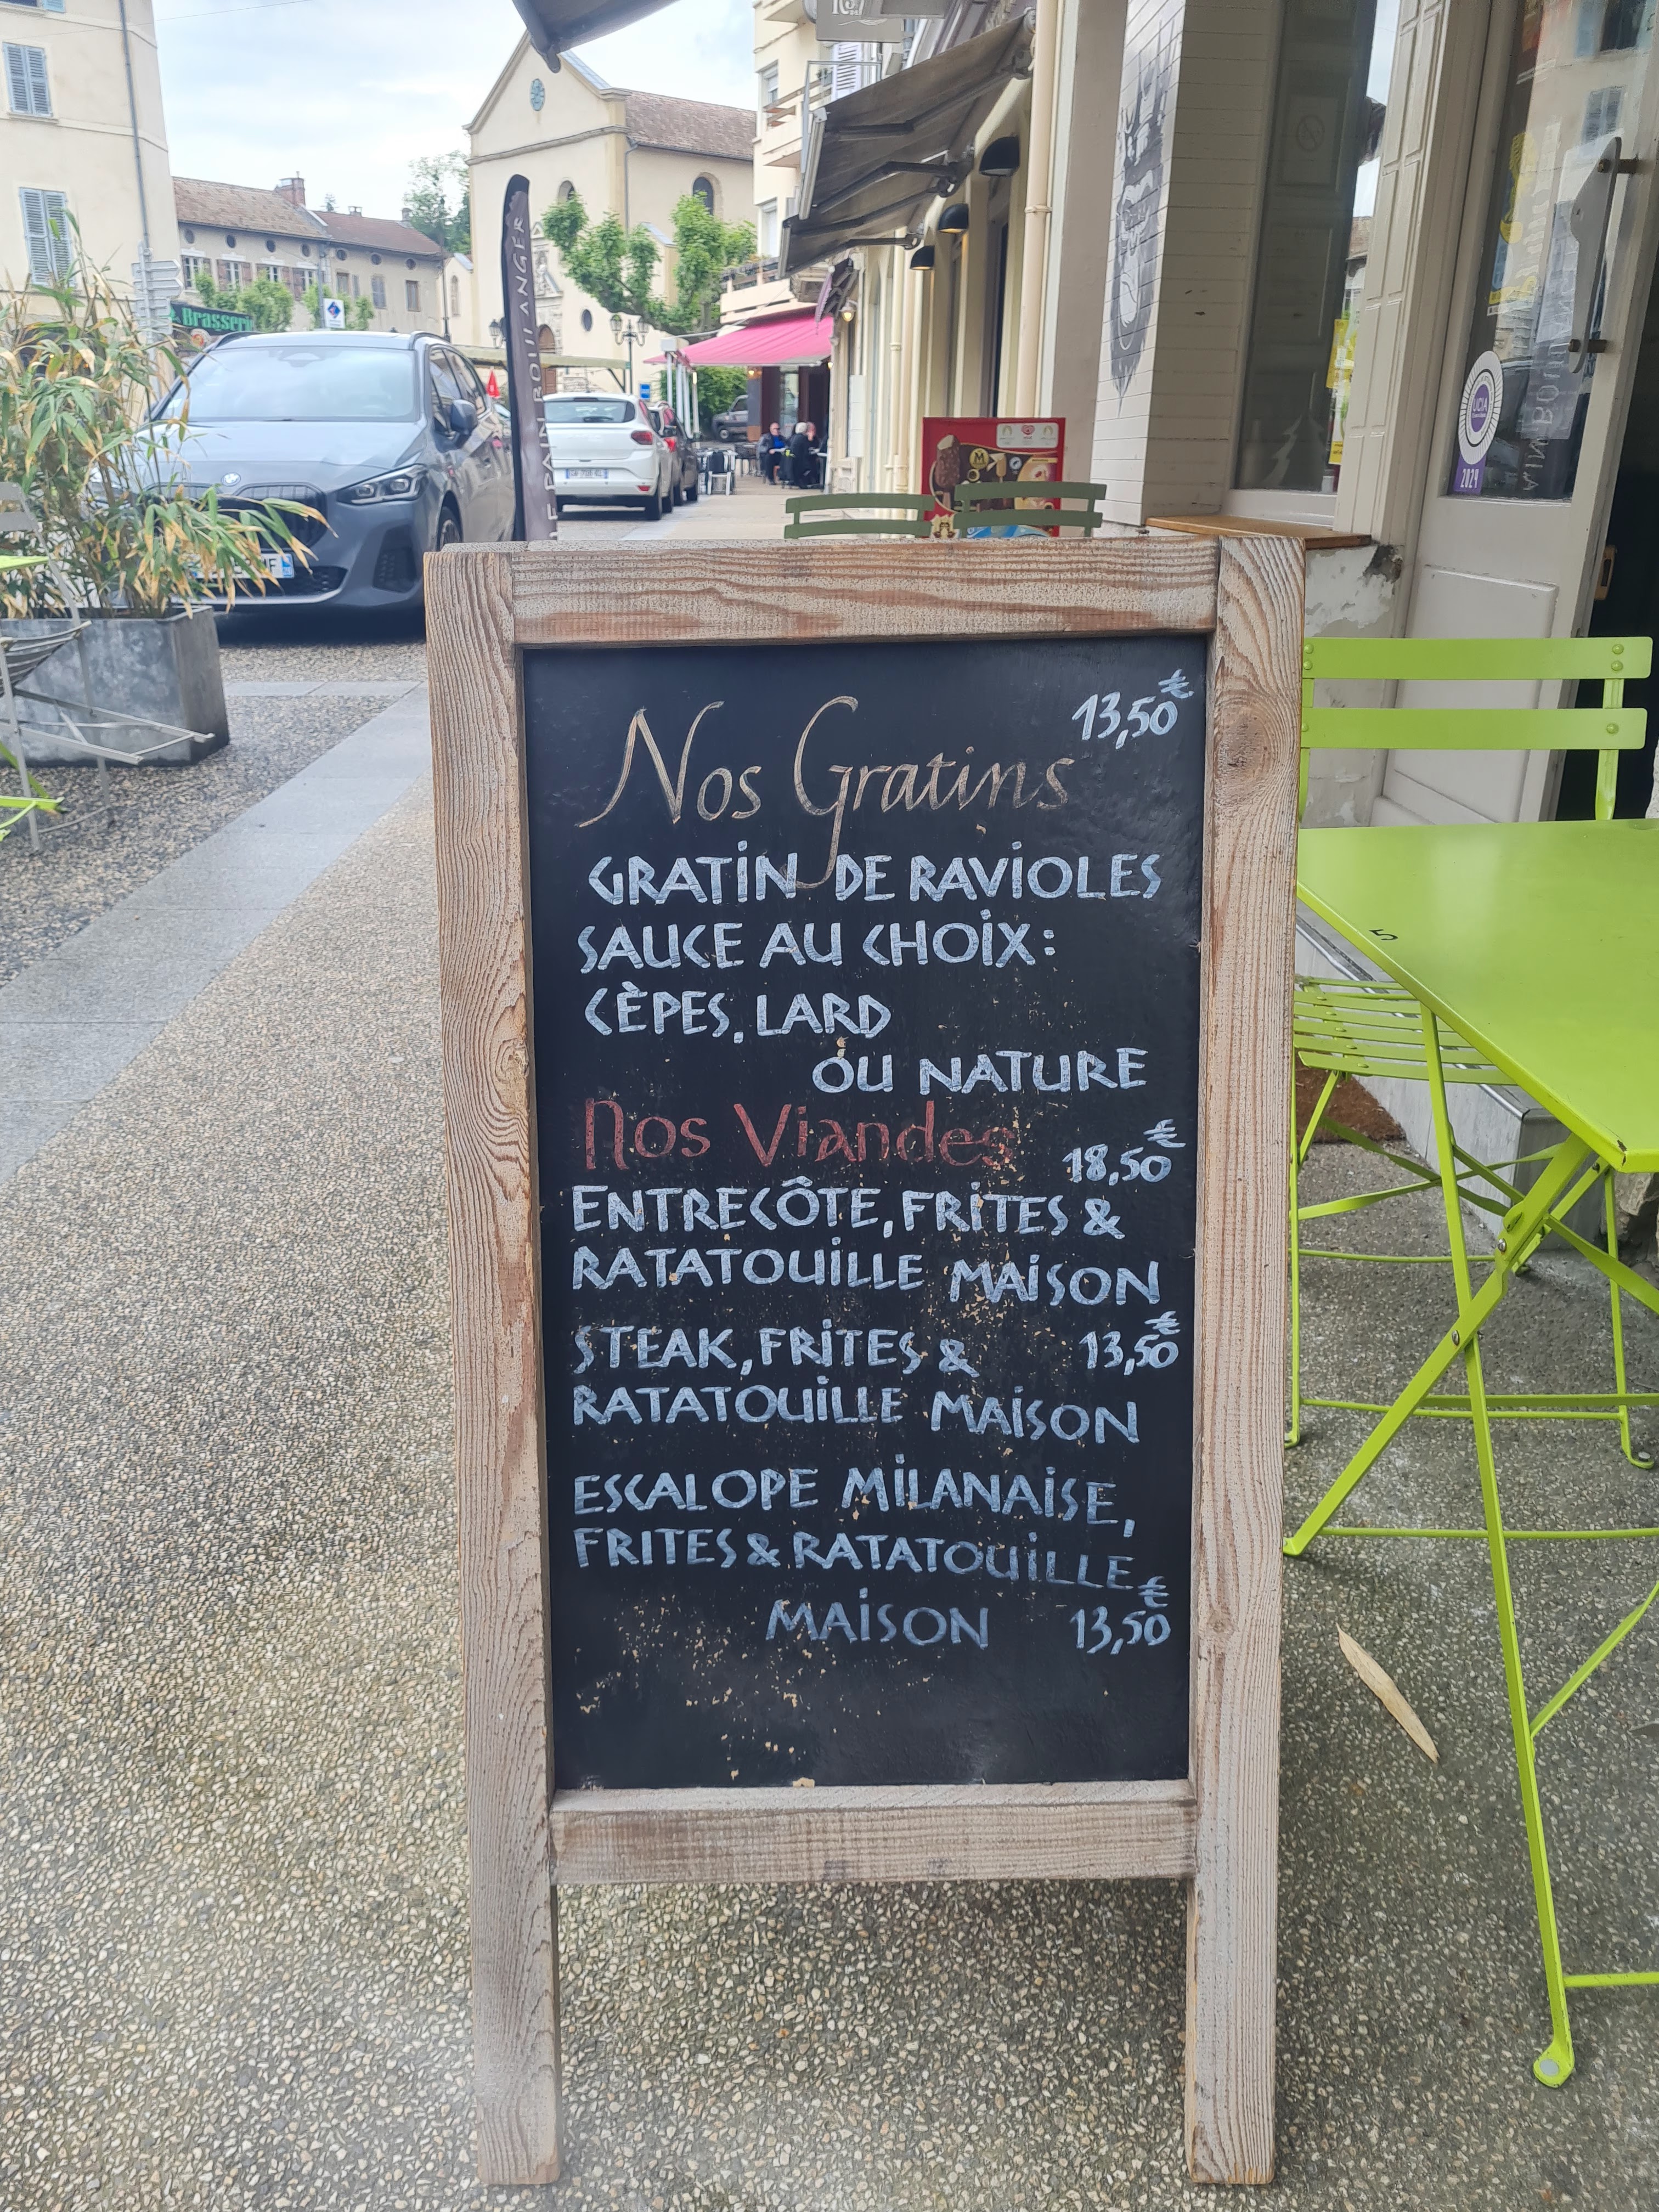 Brasserie
PAIN BOULANGER
UCIA
2024
5
13,50€
Nos Gratins
GRATIN DE RAVIOLES
SAUCE AU CHOIX:
CÈPES, LARD
OU NATURE
Nos Viandes 18,50€
ENTRECÔTE, FRITES &
RATATOUILLE MAISON
STEAK, FRITES & 13,50€
RATATOUILLE MAISON
ESCALOPE MILANAISE,
FRITES & RATATOUILLE
MAISON 13,50€